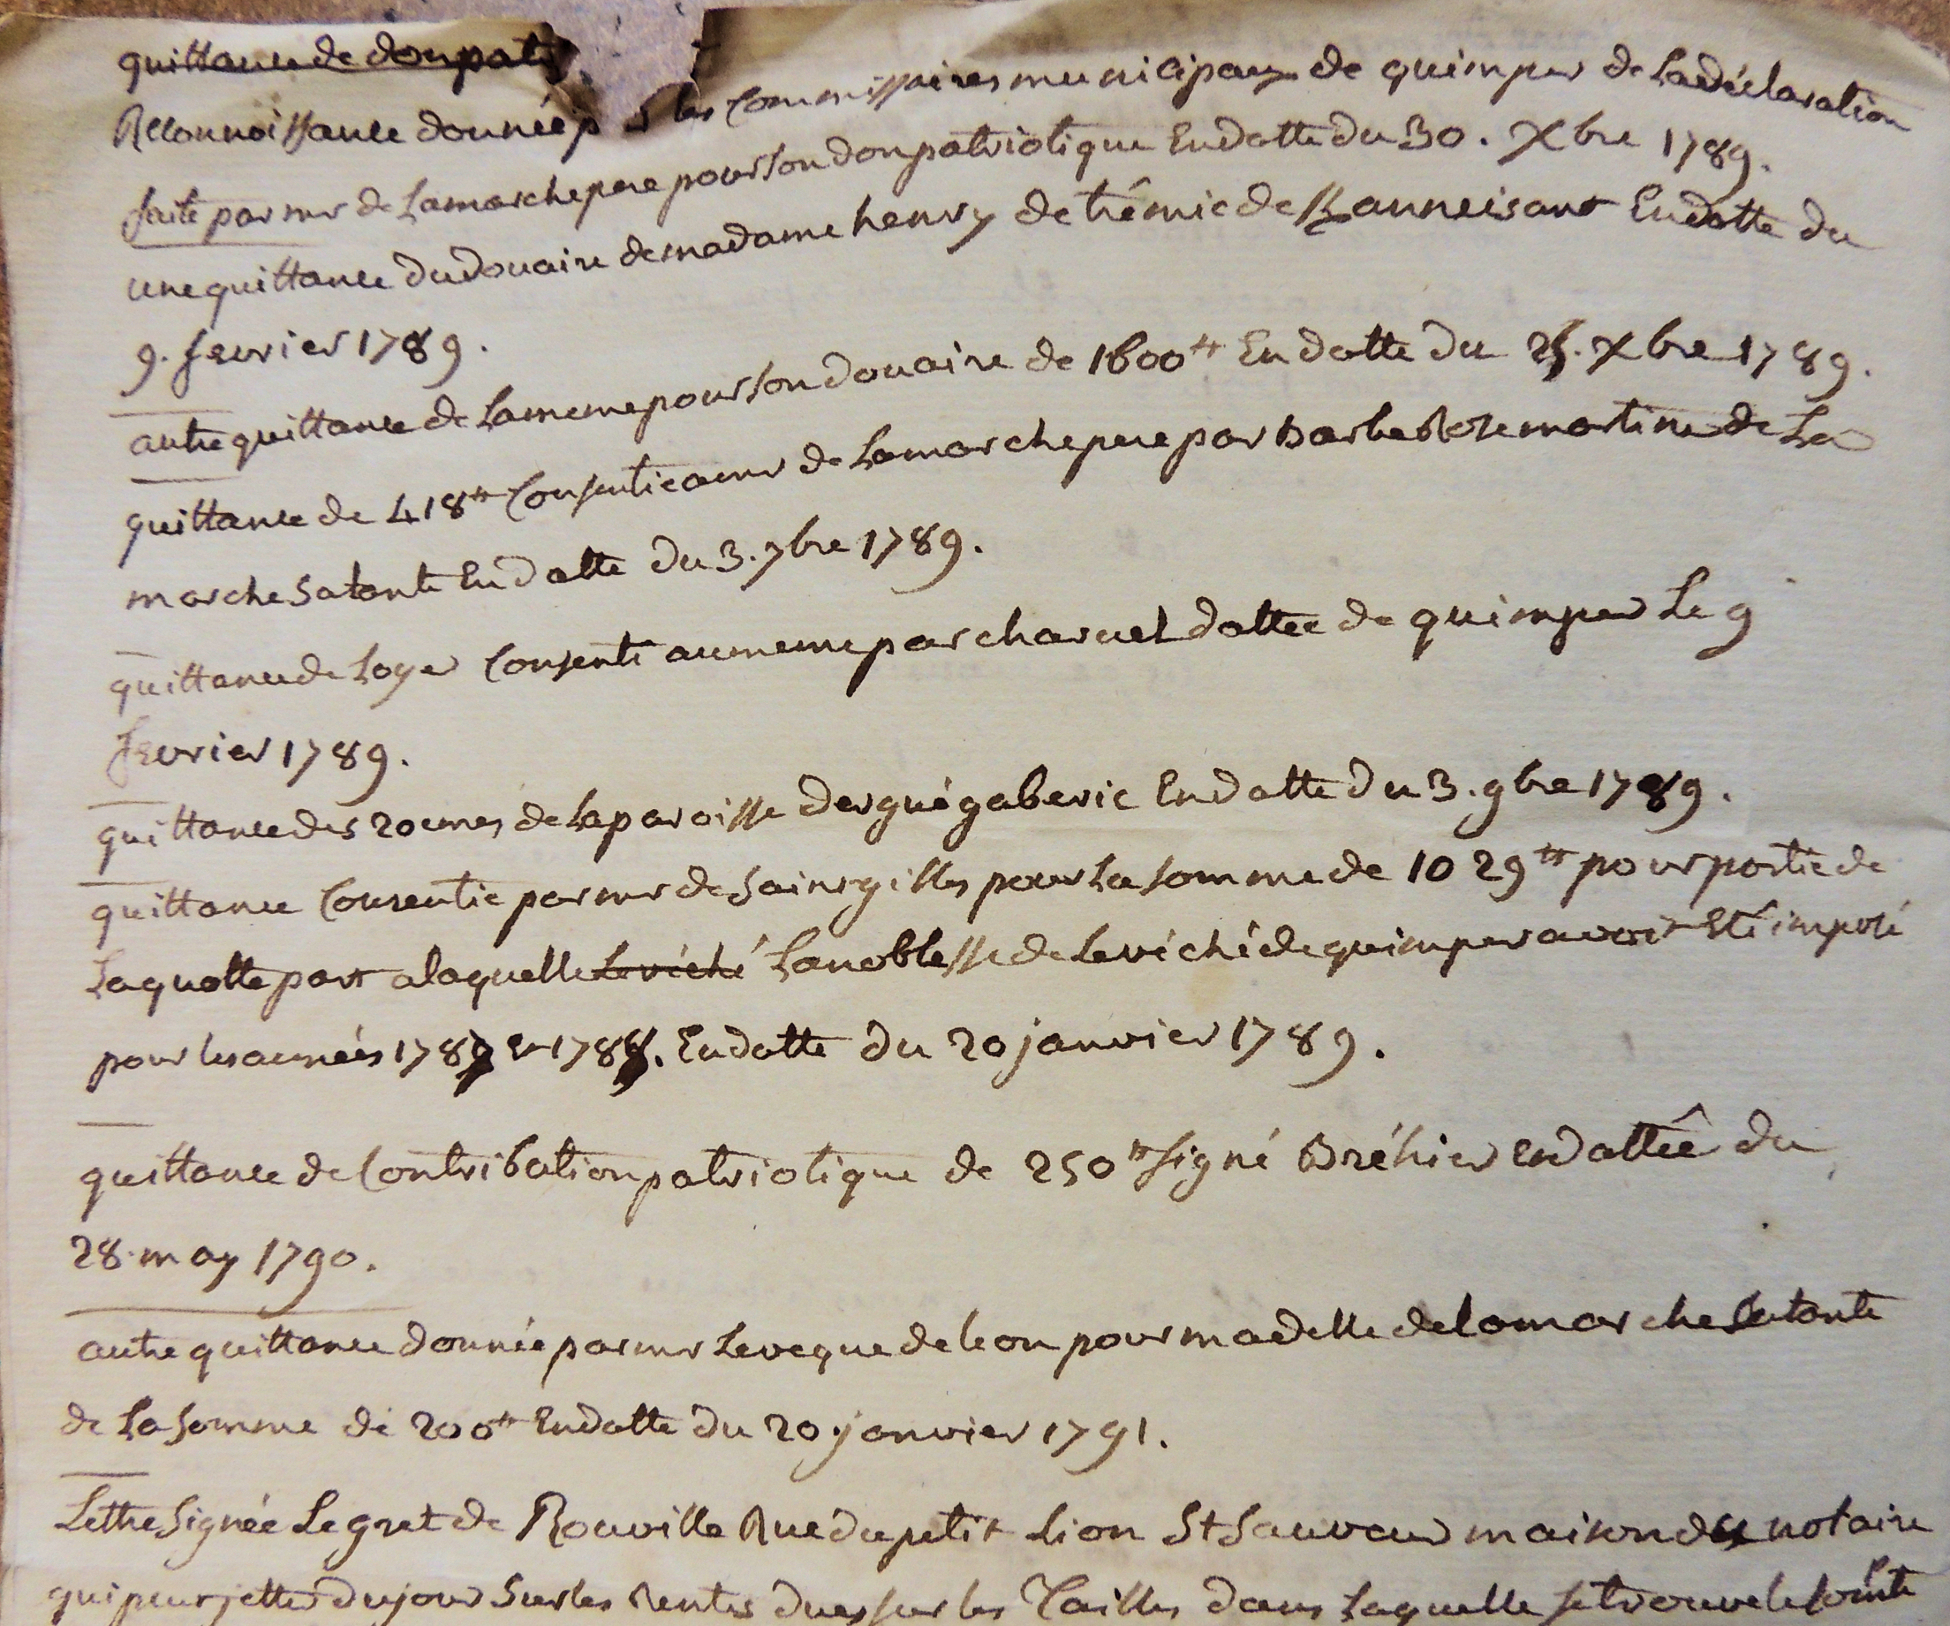 quittance de don pat
Reconnoissance donnée p les Commissaires municipaux de quimper de La déclaration
faite par mr de Lamarche pere pour son don patriotique En datte du 30. Xbre 1789.
une quittance du douaire de madame henry de trémic de Kanneisant En datte du
9. fevrier 1789.
autre quittance de La meme pour son douaire de 1600tt En datte du 25. Xbre 1789.
quittance de 418tt Consentie a mr de Lamarche pere par Barbe Rose martine de La
marche Sa tante En datte du 3. 7bre 1789.
quittance de Loyer Consenti au meme par charuel dattee de quimper Le 9
fevrier 1789.
quittance des 20emes de La paroisse derguégaberic En datte du 3. 9bre 1789.
quittance Consentie par mr de Saint gilles pour La somme de 1029tt pour partie de
La quotte part a laquelle Levéché La noblesse de Levéché de quimper avoit Eté imposé
pour les années 1787 Et 1788. En datte du 20 janvier 1789.
quittance de Contribution patriotique de 250tt signé Bréhier En dattée du
28. may 1790.
autre quittance donnée par mr Leveque de leon pour madelle de lamarche Sa tante
de La Somme de 200tt En datte du 20 janvier 1791.
Lettre Signée Legret de Rouville Rue du petit Lion St Sauveur maison du notaire
qui peut jetter du jour Sur les Rentes dues sur les Tailles dans Laquelle se trouve le